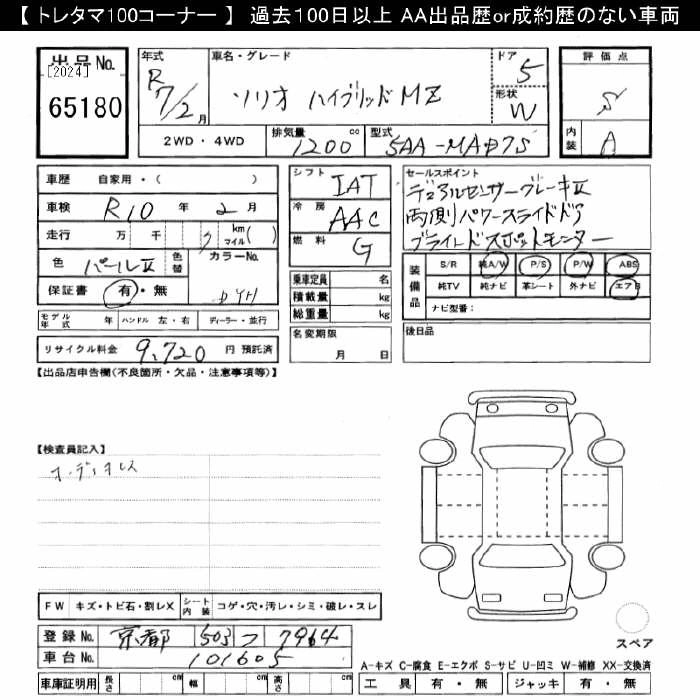 【 トレタマ100コーナー 】 過去100日以上 AA出品歴or成約歴のない車両
出品No.
[2024]
65180
年式 R 7/2 月
車名・グレード
ソリオ ハイブリッドMZ
ドア 5
形状 W
評価点
S
内装 A
2WD・4WD
排気量 1200 cc
型式 5AA-MAD7S
車歴 自家用・( )
車検 R10 年 2 月
走行 万 千 km マイル( )
色 パールII 色替
カラーNo.
保証書 有・無
モデル年式 年 ハンドル 左・右 ディーラー・並行
リサイクル料金 9,720 円 預託済
シフト IAT
冷房 AAC
燃料 G
乗車定員 名
積載量 kg
総重量 kg
名変期限
月 日
セールスポイント
デュアルセンサーブレーキII
両側パワースライドドア
ブラインドスポットモニター
装備品
S/R 純A/W P/S P/W ABS
純TV 純ナビ 革シート 外ナビ エアB
ナビ型番:
後日品
【出品店申告欄(不良箇所・欠品・注意事項等)】
【検査員記入】
オーディオレス
FW キズ・トビ石・割レX シート内装 コゲ・穴・汚レ・シミ・破レ・スレ
登録No. 京都 503 フ 7964
車台No. 101605
車庫証明用 長さ cm 幅 cm 高さ cm
スペア
A-キズ C-腐食 E-エクボ S-サビ U-凹ミ W-補修 XX-交換済
工具 有・無 ジャッキ 有・無